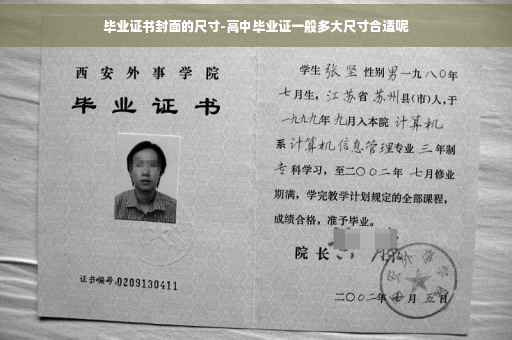 毕业证书封面的尺寸-高中毕业证一般多大尺寸合适呢
西安外事学院
毕业证书
证书编号:0209130411
学生 张坚 性别 男 一九八〇年
七月生,江苏省 苏州 县(市)人,于
一九九九年 九月入本院 计算机
系 计算机信息管理 专业 三 年制
专 科学习,至二〇〇二年 七月修业
期满,学完教学计划规定的全部课程,
成绩合格,准予毕业。
院长
二〇〇二年 七 月 五 日